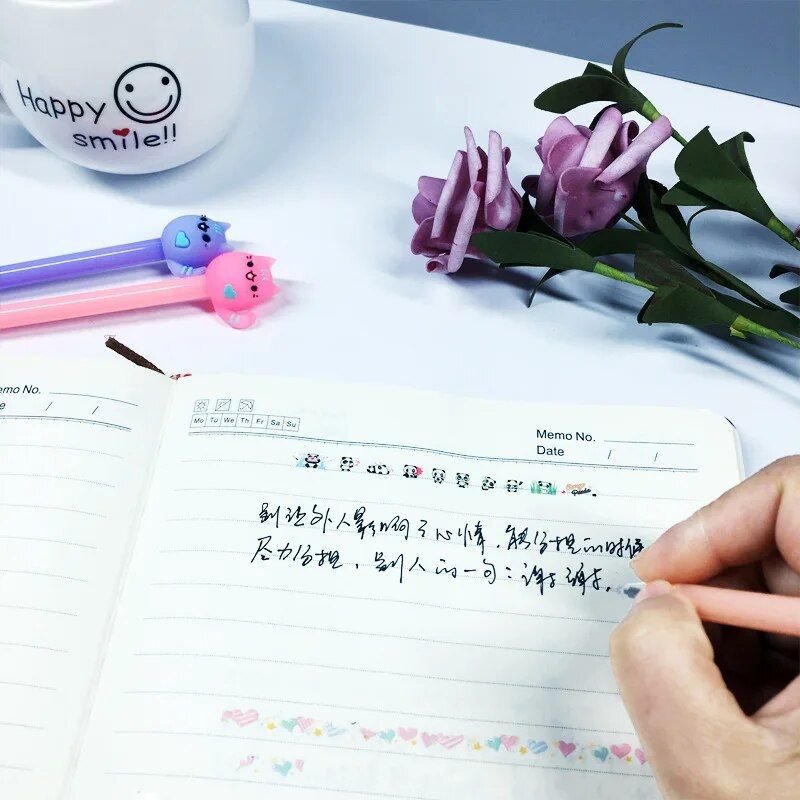 Happy
smile!!
emo No.
e / /
Mo Tu We Th Fr Sa Su
Memo No.
Date / /
别让外人影响了心情，能分担的时候
尽力分担，别人的一句：谢谢谢了。